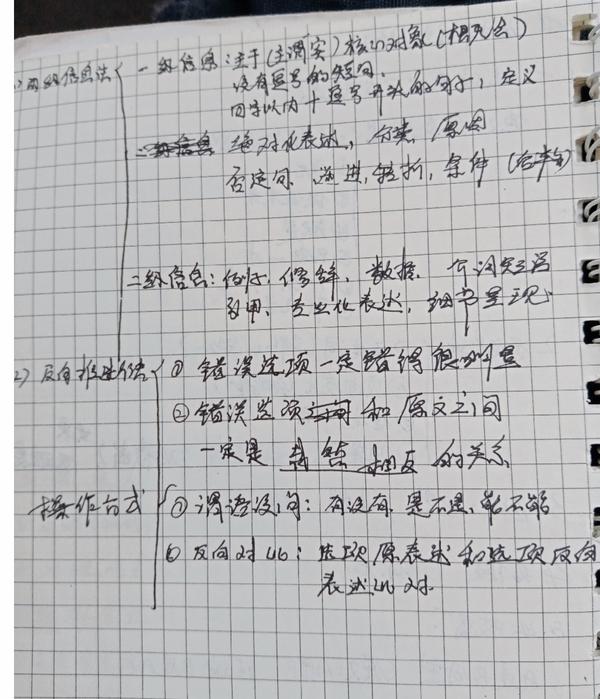 1) 两级信息法 一级信息：主干(主谓宾) 核心对象(概念)
没有逗号的短句.
四字以内+逗号开头的句子，定义
绝对化表述，分类 原因
否定句 递进,转折,条件 (后半句)
二级信息：例子，修辞，数据，介词短语
引用，专业化表述，细节呈现
2) 反向推进法 ① 错误选项一定错得很明显
② 错误选项 和 原文之间
一定是 相反 的关系
操作方式 ① 谓语设问：有没有 是不是，能不能
② 反向对比：选项原表述和选项反向
表述比对